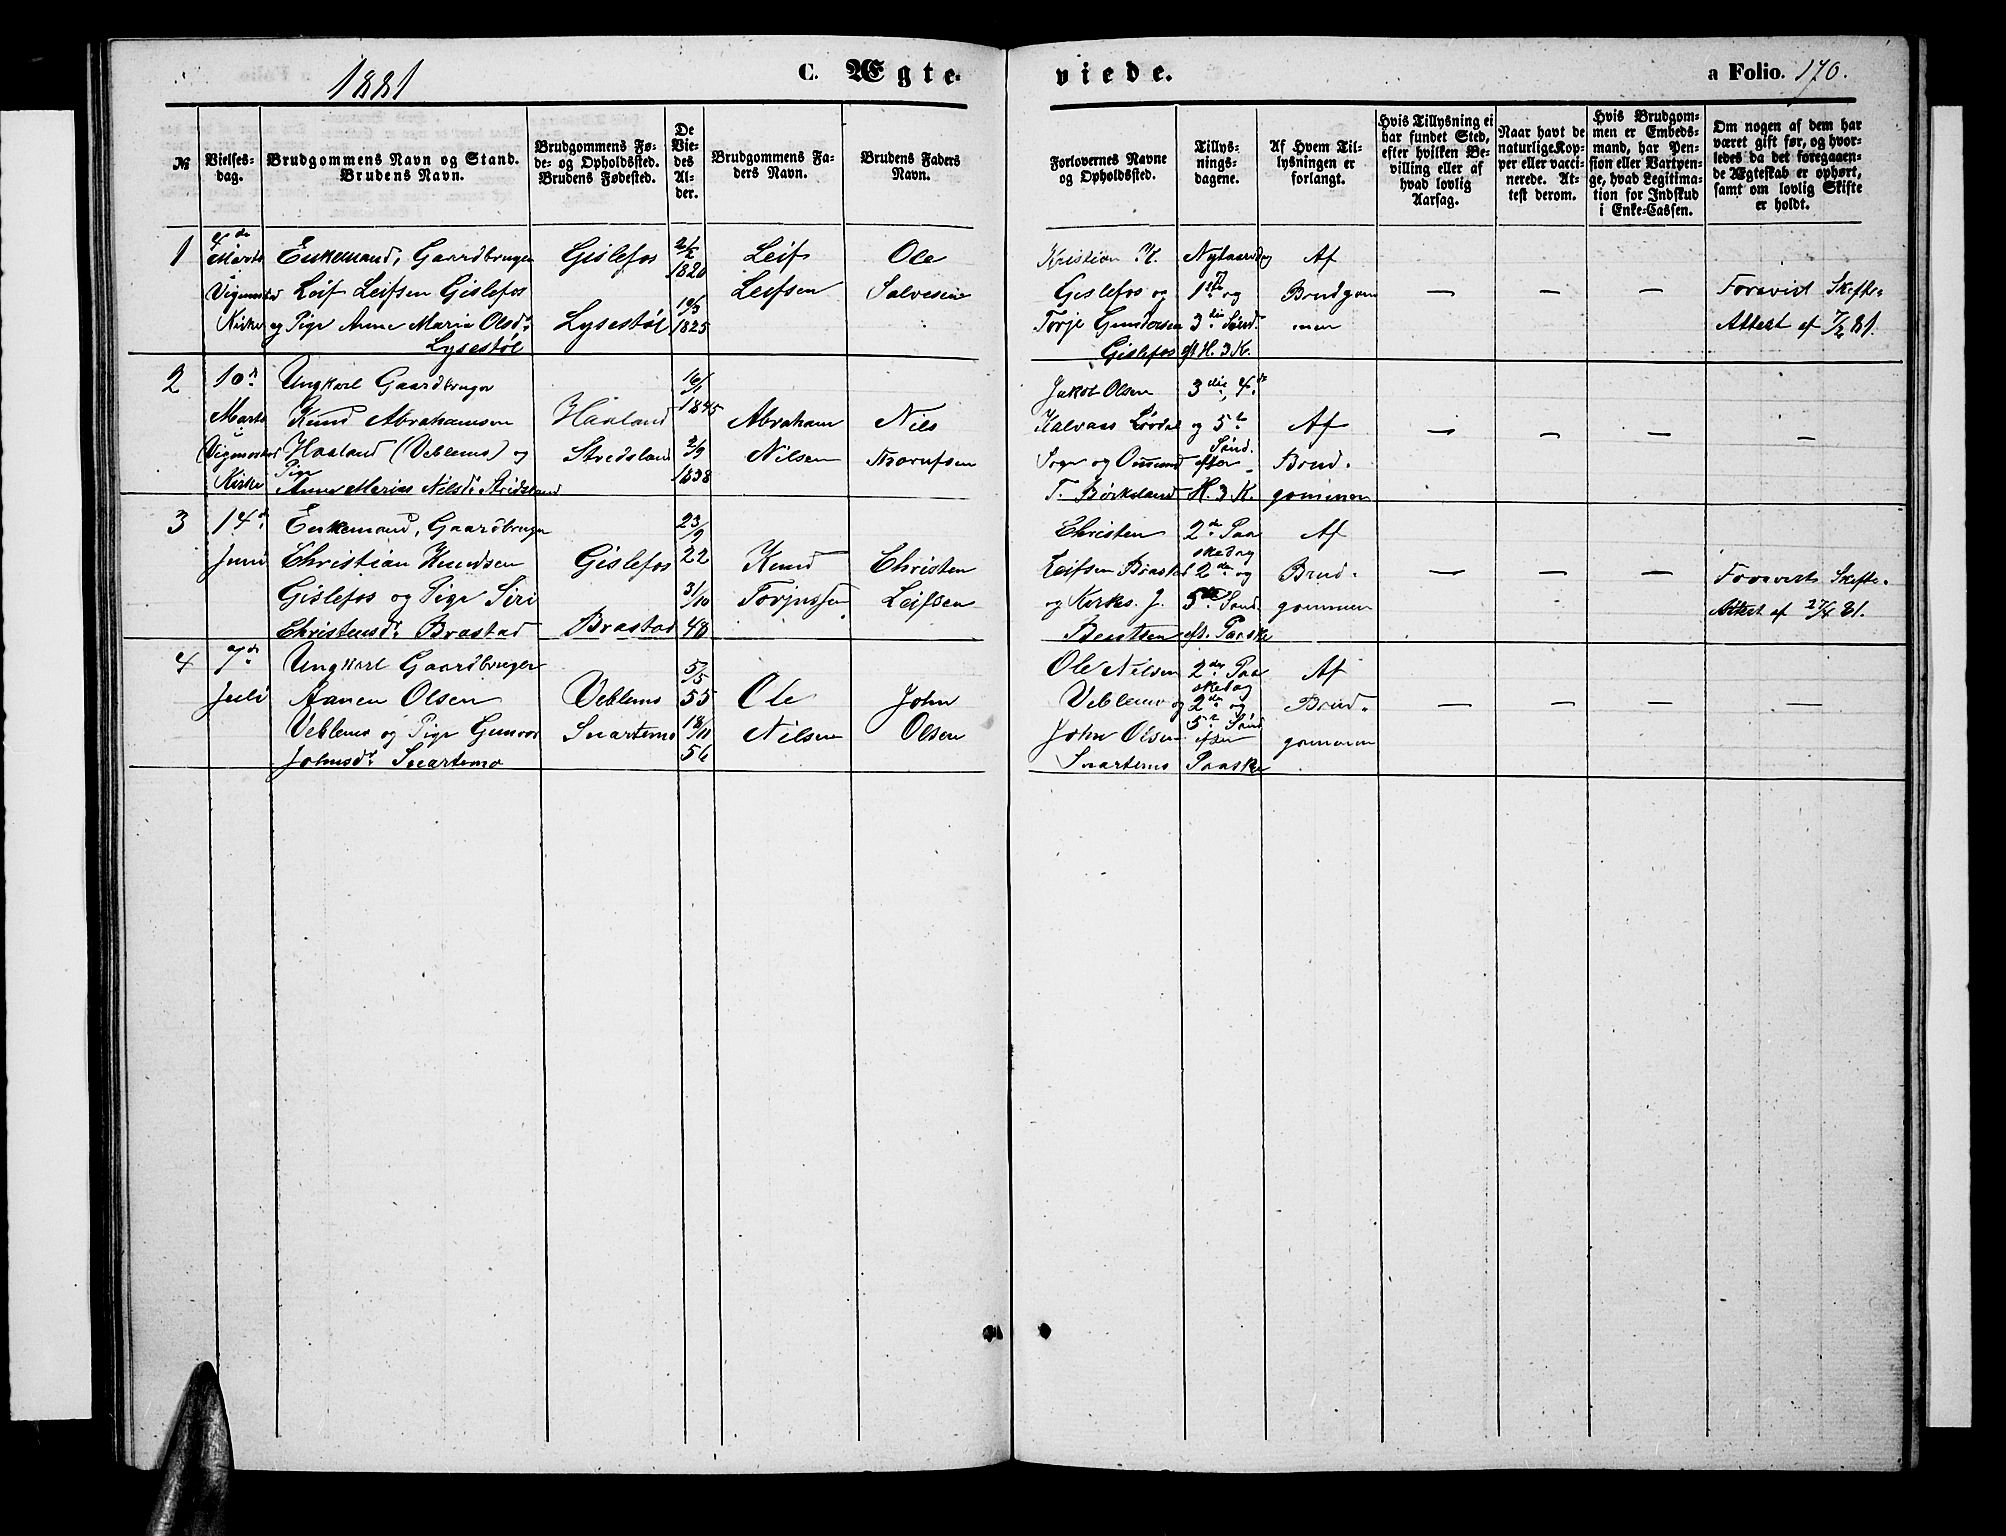 1881
C. Ægte-
viede.
a Folio. 170.
№
Vielses-
dag.
Brudgommens Navn og Stand.
Brudens Navn.
Brudgommens Fø-
de- og Opholdssted.
Brudens Fødested.
De
Vie-
des
Al-
der.
Brudgommens Fa-
ders Navn.
Brudens Faders
Navn.
Forlovernes Navne
og Opholdssted.
Tillys-
nings-
dagene.
Af Hvem Til-
lysningen er
forlangt.
Hvis Tillysning ei
har fundet Sted,
efter hvilken Be-
villing eller af
hvad lovlig
Aarsag.
Naar havt de
naturlige Kop-
per eller vacci-
nerede. At-
test derom.
Hvis Brudgom-
men er Embeds-
mand, har Pen-
sion eller Vartpen-
ge, hvad Legitima-
tion for Indskud
i Enke-Cassen.
Om nogen af dem har
været gift før, og hvor-
ledes da det foregaaen-
de Ægteskab er ophørt,
samt om lovlig Skifte
er holdt.
1
4de
Marts
Vigmostad
Kirke
Enkemand, Gaardbruger
Leif Leifsen Gislefos
og Pige Anne Maria Olsd.
Lysestøl
Gislefos
Lysestøl
2/2
1820
10/3
1825
Leif
Leifsen
Ole
Salvesen
Kristian K.
Gislefos og
Torje Gundersen
Gislefos
Nytaarsdag
1ste og
3die Sønd.
eft H. 3 K.
Af
Brudgom
men
—
—
—
Forevist Skifte-
Attest af 7/2 81.
2
10n
Marts
Vigmostad
Kirke
Ungkarl Gaardbruger
Knud Abrahamsen
Haaland (Veblemo) og
Pige
Anne Marias Nilsd. Stridsland
Haaland
Stridsland
16/1
1845
2/9
1838
Abraham
Nilsen
Nils
Jakob Olsen
Kalvaas Lørdal
Sogn og Omund
T. Birkeland
3die, 4de
og 5te
Sønd.
efter
H. 3 K.
Af
Brud-
gommen
—
—
—
—
3
14d
Juni
Enkemand, Gaardbruger
Christian Knudsen
Gislefos og Pige Siri
Christensd. Brastad
Gislefos
Brastad
23/9
22
31/10
48
Knud
Torjussen
Christen
Leifsen
Christen
Leifsen Brastad
og Kirkes. J.
Bentsen
2den Paa
skedag
2den og
5te Sønd.
eft. Paaske
Af
Brud-
gommen
—
—
—
Forevist Skifte-
Attest af 27/4 81.
4
7de
Juli
Ungkarl Gaardbruger
Aanen Olsen
Veblemo og Pige Gunvor
Johnsd. Snartemo
Veblemo
Snartemo
5/5
55
18/11
56
Ole
Nilsen
John
Olsen
Ole Nilsen
Veblemo og
John Olsen
Snartemo
2den Paa
skedag
2den og
5te Sønd
efter
Paaske
Af
Brud-
gommen
—
—
—
—